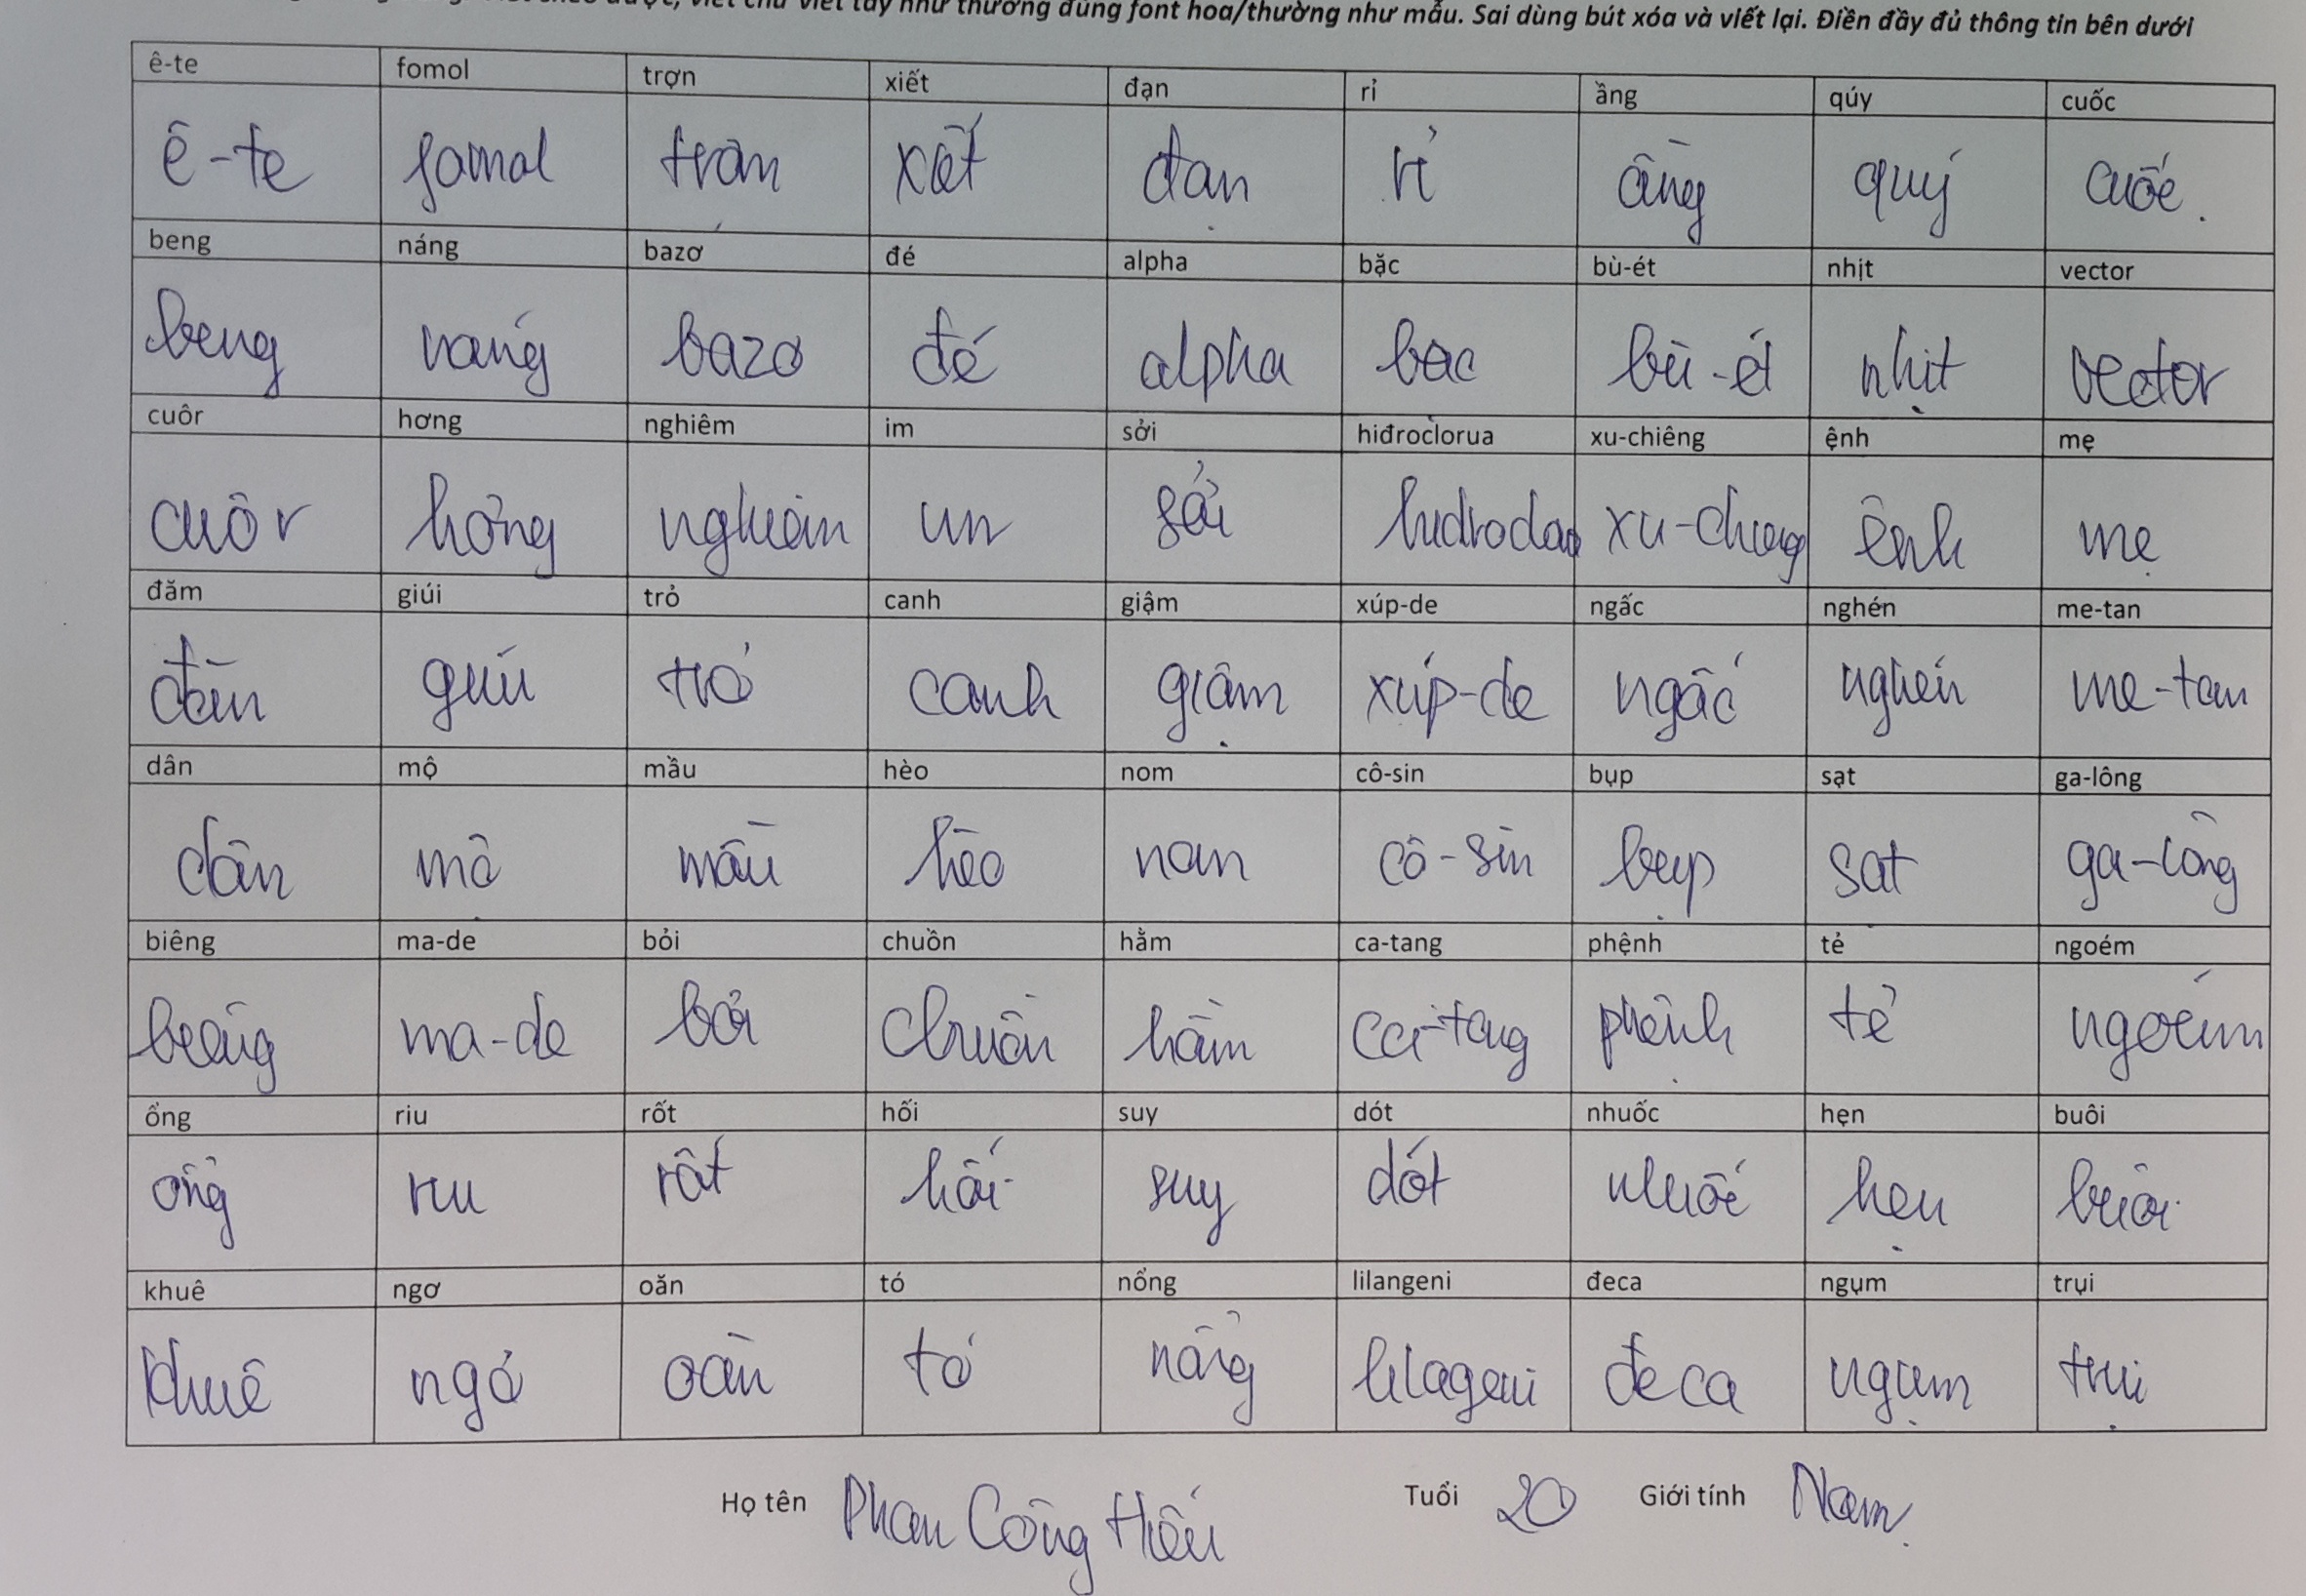 như thường dùng font hoa/thường như mẫu. Sai dùng bút xóa và viết lại. Điền đầy đủ thông tin bên dưới
ê-te fomol trợn xiết đạn rỉ ầng qúy cuốc
ê-te fomol trợn xiết đạn rỉ ầng quý cuốc.
beng náng bazơ đé alpha bặc bù-ét nhịt vector
beng náng bazơ đé alpha bặc bù-ét nhịt vector
cuôr hơng nghiêm im sởi hiđroclorua xu-chiêng ệnh mẹ
cuôr hơng nghiêm im sởi xu-chiêng ệnh mẹ
đăm giúi trỏ canh giậm xúp-de ngấc nghén me-tan
giúi trỏ canh giậm xúp-de ngấc nghén me-tan
dân mộ mầu hèo nom cô-sin bụp sạt ga-lông
dân mộ mầu hèo nom cô-sin bụp sạt ga-lông
biêng ma-de bỏi chuồn hằm ca-tang phệnh tẻ ngoém
biêng ma-de bỏi chuồn hằm ca-tang phệnh tẻ ngoém
ổng riu rốt hối suy dót nhuốc hẹn buôi
ổng riu rốt hối suy dót nhuốc hẹn buôi
khuê ngơ oăn tó nổng lilangeni đeca ngụm trụi
khuê ngơ oăn tó nổng lilageni đeca ngụm trụi
Họ tên Phan Công Hiếu Tuổi 20 Giới tính Nam.